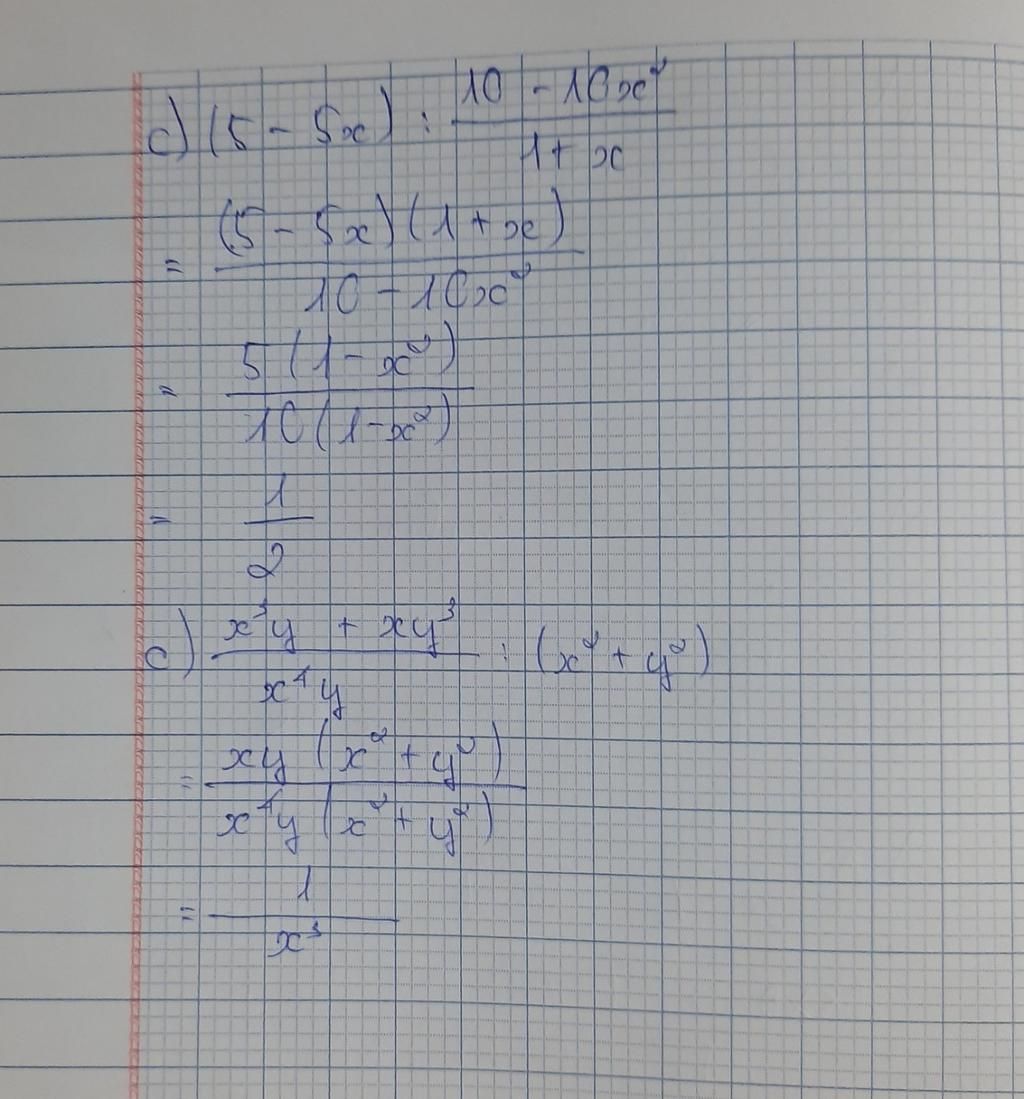 c) (5 - 5x) : \frac{10 - 10x^2}{1 + x}
= \frac{(5 - 5x)(1 + x)}{10 - 10x^2}
= \frac{5(1 - x^2)}{10(1 - x^2)}
= \frac{1}{2}
c) \frac{x^3y + xy^3}{x^4y} : (x^2 + y^2)
= \frac{xy(x^2 + y^2)}{x^4y(x^2 + y^2)}
= \frac{1}{x^3}